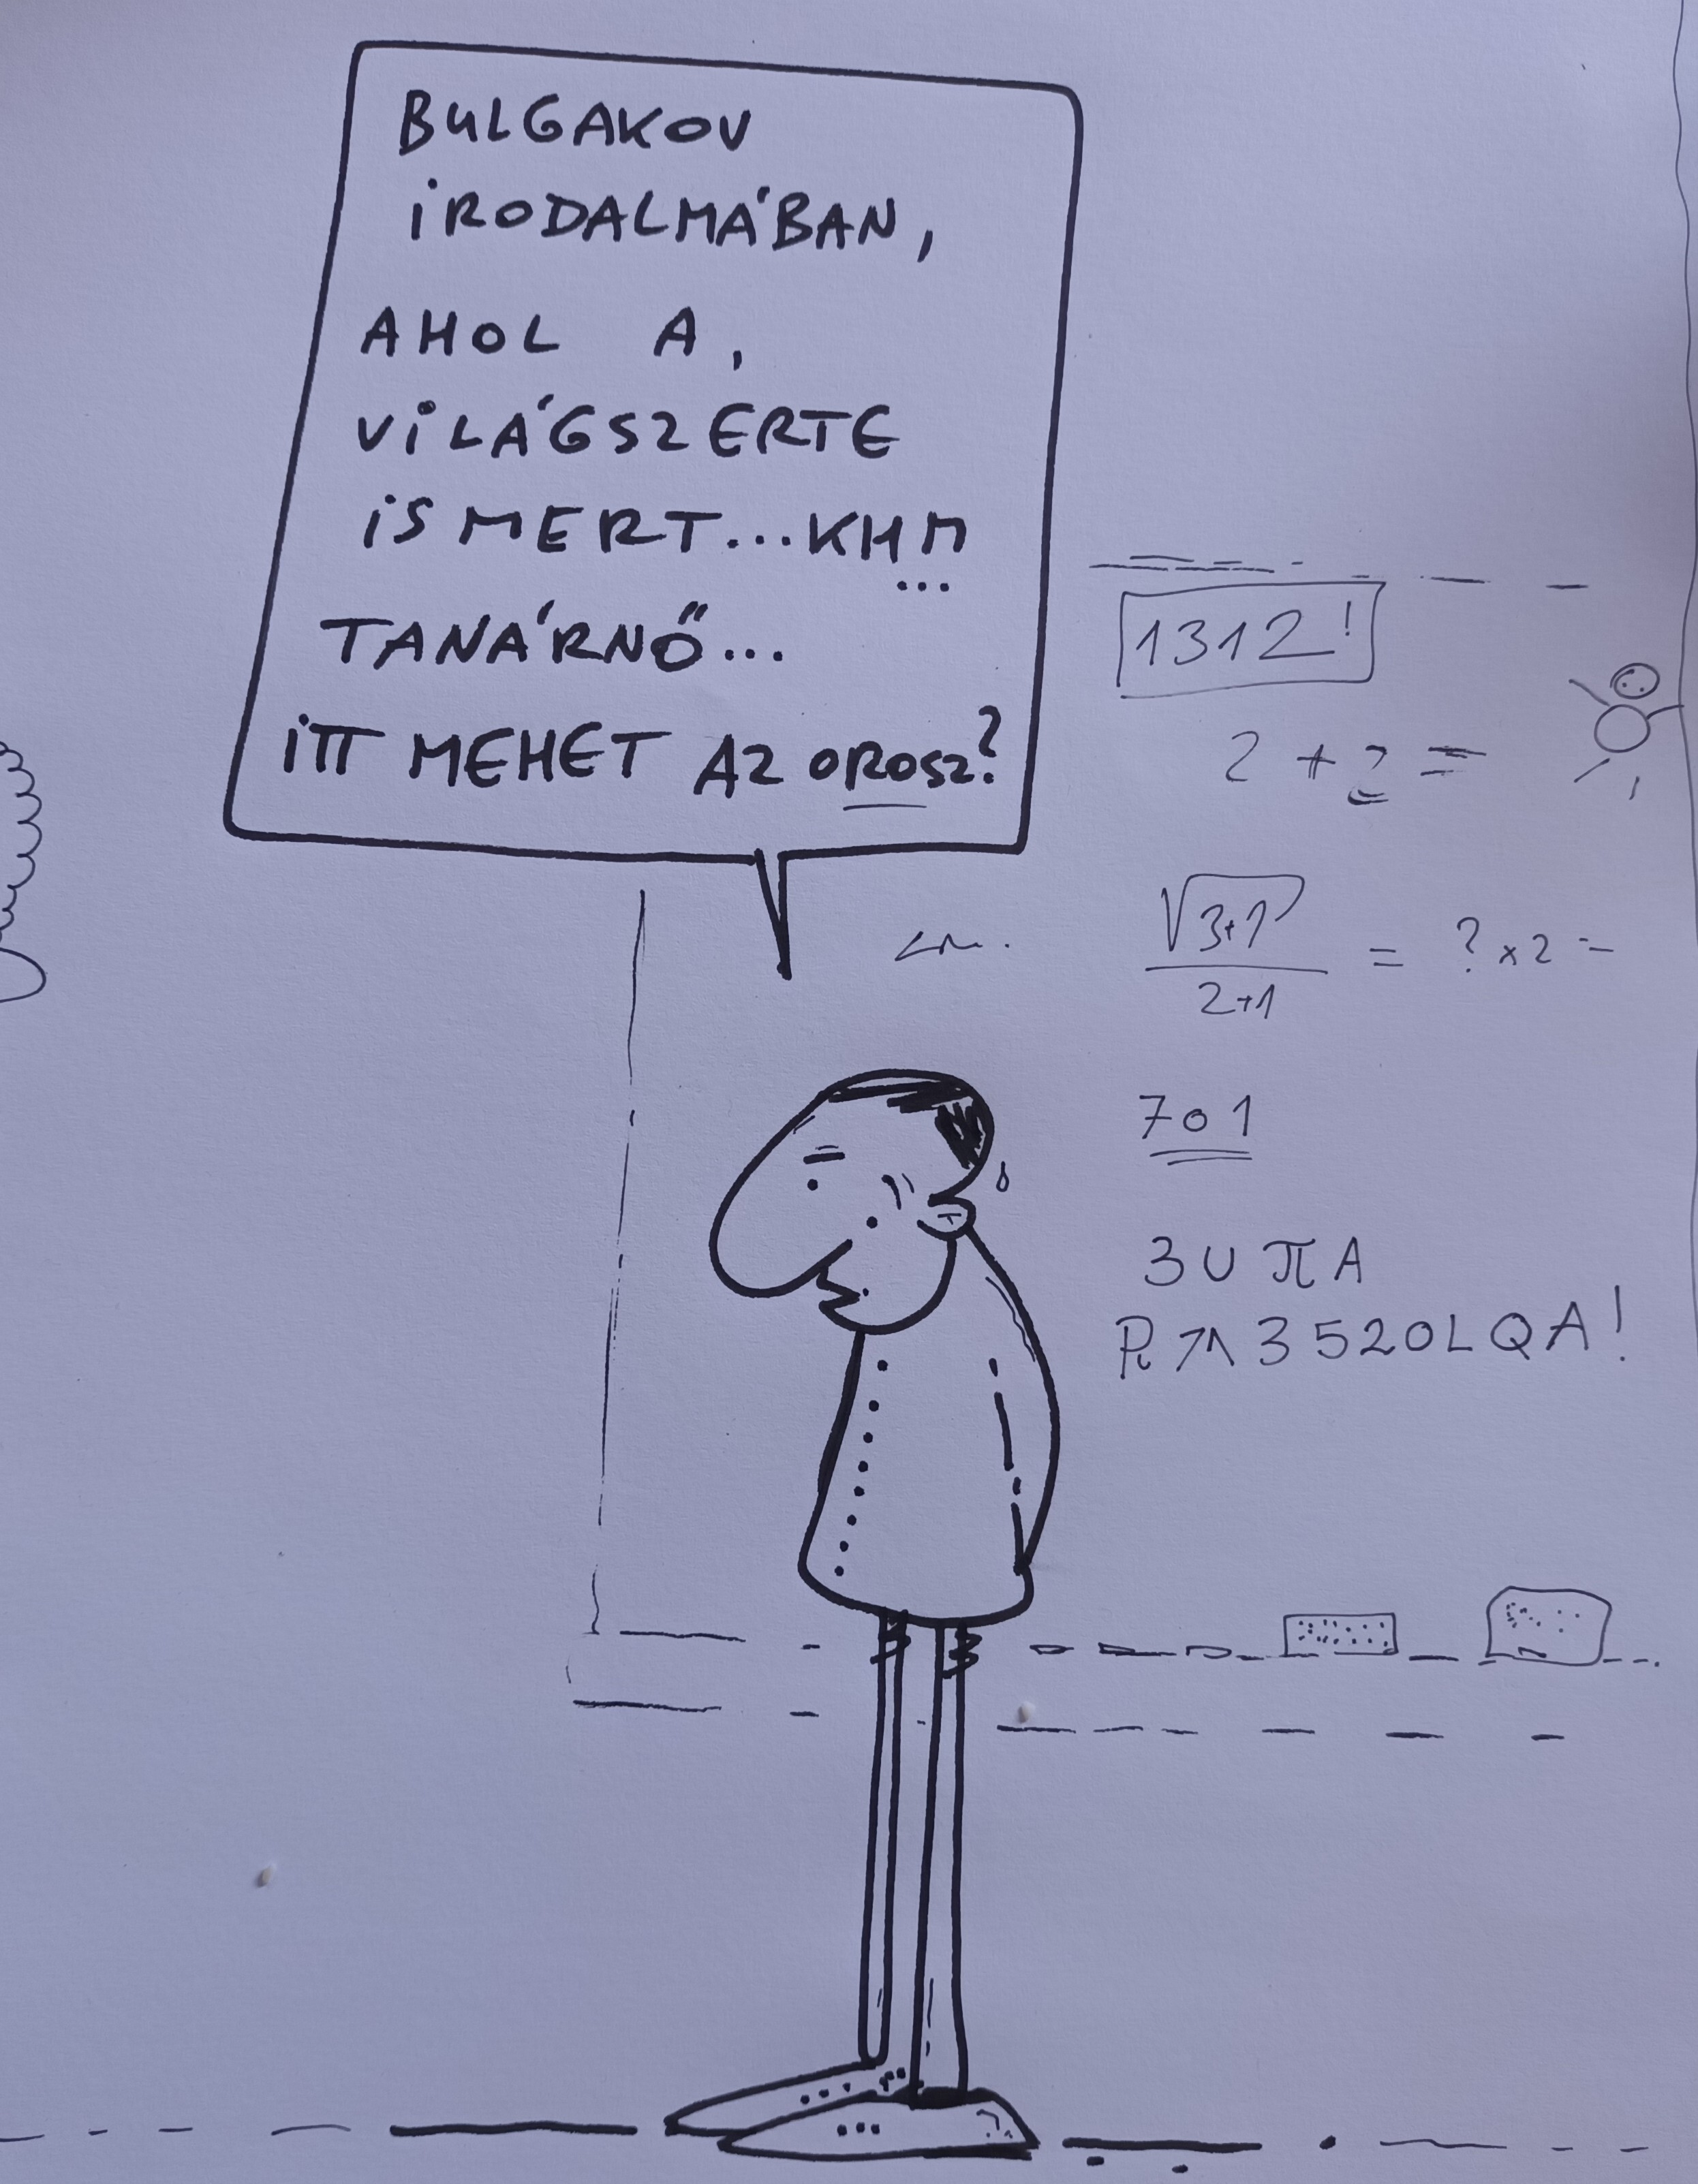 BULGAKOV
IRODALMÁBAN,
AHOL A,
VILÁGSZERTE
ISMERT...KHM
...
TANÁRNŐ...
ITT MEHET AZ OROSZ?
1312!
2 + 2 =
√3+1
2+1
= ? x 2 =
701
3 U π A
3520LQA!